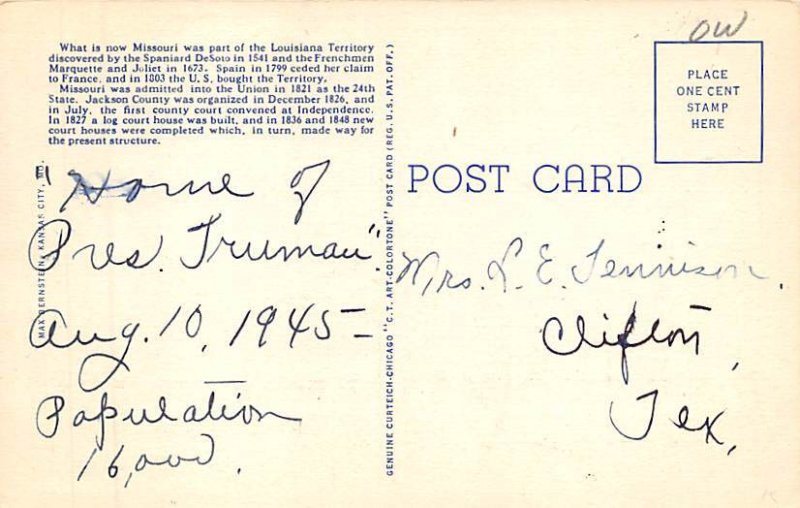 What is now Missouri was part of the Louisiana Territory
discovered by the Spaniard DeSoto in 1541 and the Frenchmen
Marquette and Joliet in 1673. Spain in 1799 ceded her claim
to France, and in 1803 the U. S. bought the Territory.
Missouri was admitted into the Union in 1821 as the 24th
State. Jackson County was organized in December 1826, and
in July, the first county court convened at Independence.
In 1827 a log court house was built, and in 1836 and 1848 new
court houses were completed which, in turn, made way for
the present structure.
"Home of
Pres. Truman".
Aug. 10, 1945 –
Population
16,000.
MAX BERNSTEIN, KANSAS CITY, MO.
GENUINE CURTEICH-CHICAGO "C. T. ART-COLORTONE" POST CARD (REG. U. S. PAT. OFF.)
OW
PLACE
ONE CENT
STAMP
HERE
POST CARD
Mrs. L. E. Tennison.
Clifton,
Tex,